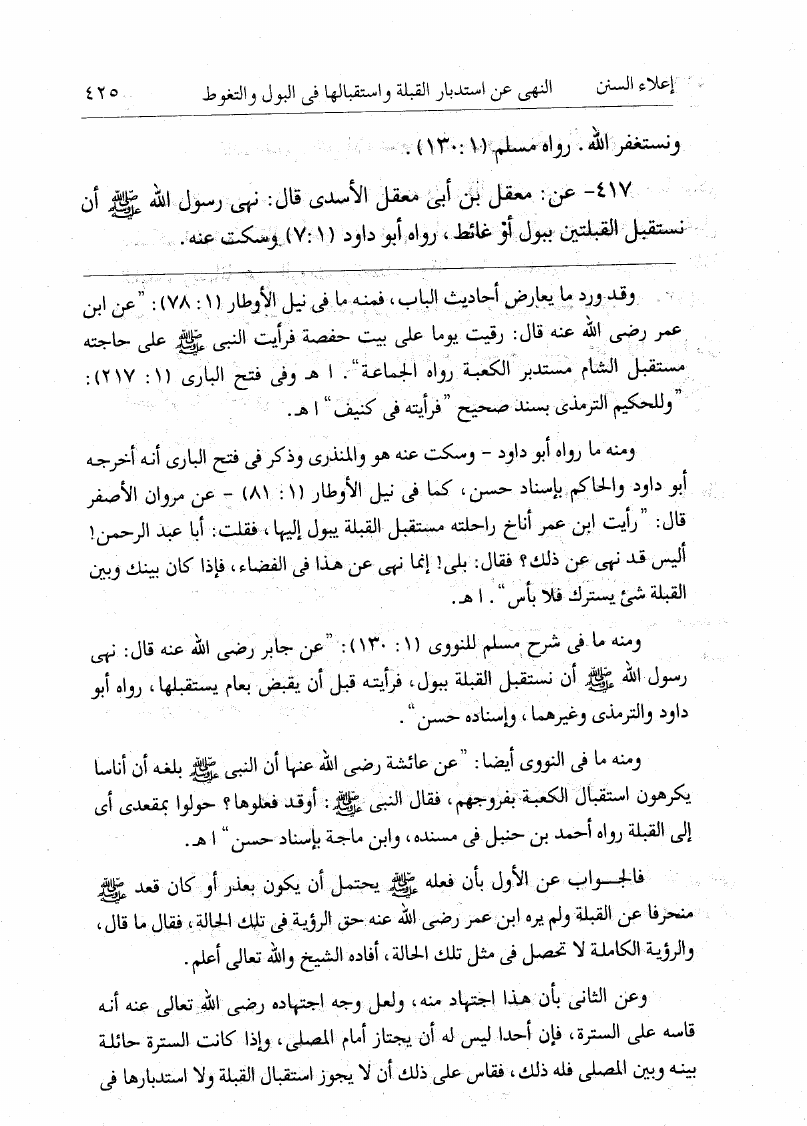 إعلاء السنن النهى عن استدبار القبلة واستقبالها فى البول والتغوط ٤٢٥
ونستغفر الله. رواه مسلم (١: ١٣٠).
٤١٧- عن: معقل بن أبى معقل الأسدى قال: نهى رسول الله ﷺ أن
نستقبل القبلتين ببول أوْ غائط، رواه أبو داود (١: ٧) وسكت عنه.
وقد ورد ما يعارض أحاديث الباب، فمنه ما فى نيل الأوطار (١: ٧٨): "عن ابن
عمر رضى الله عنه قال: رقيت يوما على بيت حفصة فرأيت النبى ﷺ على حاجته
مستقبل الشام مستدبر الكعبة رواه الجماعة". ا هـ وفى فتح البارى (١: ٢١٧):
"وللحكيم الترمذى بسند صحيح "فرأيته فى كنيف" ا هـ.
ومنه ما رواه أبو داود - وسكت عنه هو والمنذرى وذكر فى فتح البارى أنه أخرجه
أبو داود والحاكم بإسناد حسن، كما فى نيل الأوطار (١: ٨١) - عن مروان الأصفر
قال: "رأيت ابن عمر أناخ راحلته مستقبل القبلة يبول إليها، فقلت: أبا عبد الرحمن!
أليس قد نهى عن ذلك؟ فقال: بلى! إنما نهى عن هذا فى الفضاء، فإذا كان بينك وبين
القبلة شئ يسترك فلا بأس". ا هـ.
ومنه ما فى شرح مسلم للنووى (١: ١٣٠): "عن جابر رضى الله عنه قال: نهى
رسول الله ﷺ أن نستقبل القبلة ببول، فرأيته قبل أن يقبض بعام يستقبلها، رواه أبو
داود والترمذى وغيرهما، وإسناده حسن".
ومنه ما فى النووى أيضا: "عن عائشة رضى الله عنها أن النبى ﷺ بلغه أن أناسا
يكرهون استقبال الكعبة بفروجهم، فقال النبى ﷺ: أوقد فعلوها؟ حولوا بمقعدى أى
إلى القبلة رواه أحمد بن حنبل فى مسنده، وابن ماجة بإسناد حسن" ا هـ.
فالجـــواب عن الأول بأن فعله ﷺ يحتمل أن يكون بعذر أو كان قعد ﷺ
منحرفا عن القبلة ولم يره ابن عمر رضى الله عنه حق الرؤية فى تلك الحالة، فقال ما قال،
والرؤية الكاملة لا تحصل فى مثل تلك الحالة، أفاده الشيخ والله تعالى أعلم.
وعن الثانى بأن هذا اجتهاد منه، ولعل وجه اجتهاده رضى الله تعالى عنه أنه
قاسه على السترة، فإن أحدا ليس له أن يجتاز أمام المصلى، وإذا كانت السترة حائلة
بينه وبين المصلى فله ذلك، فقاس على ذلك أن لا يجوز استقبال القبلة ولا استدبارها فى